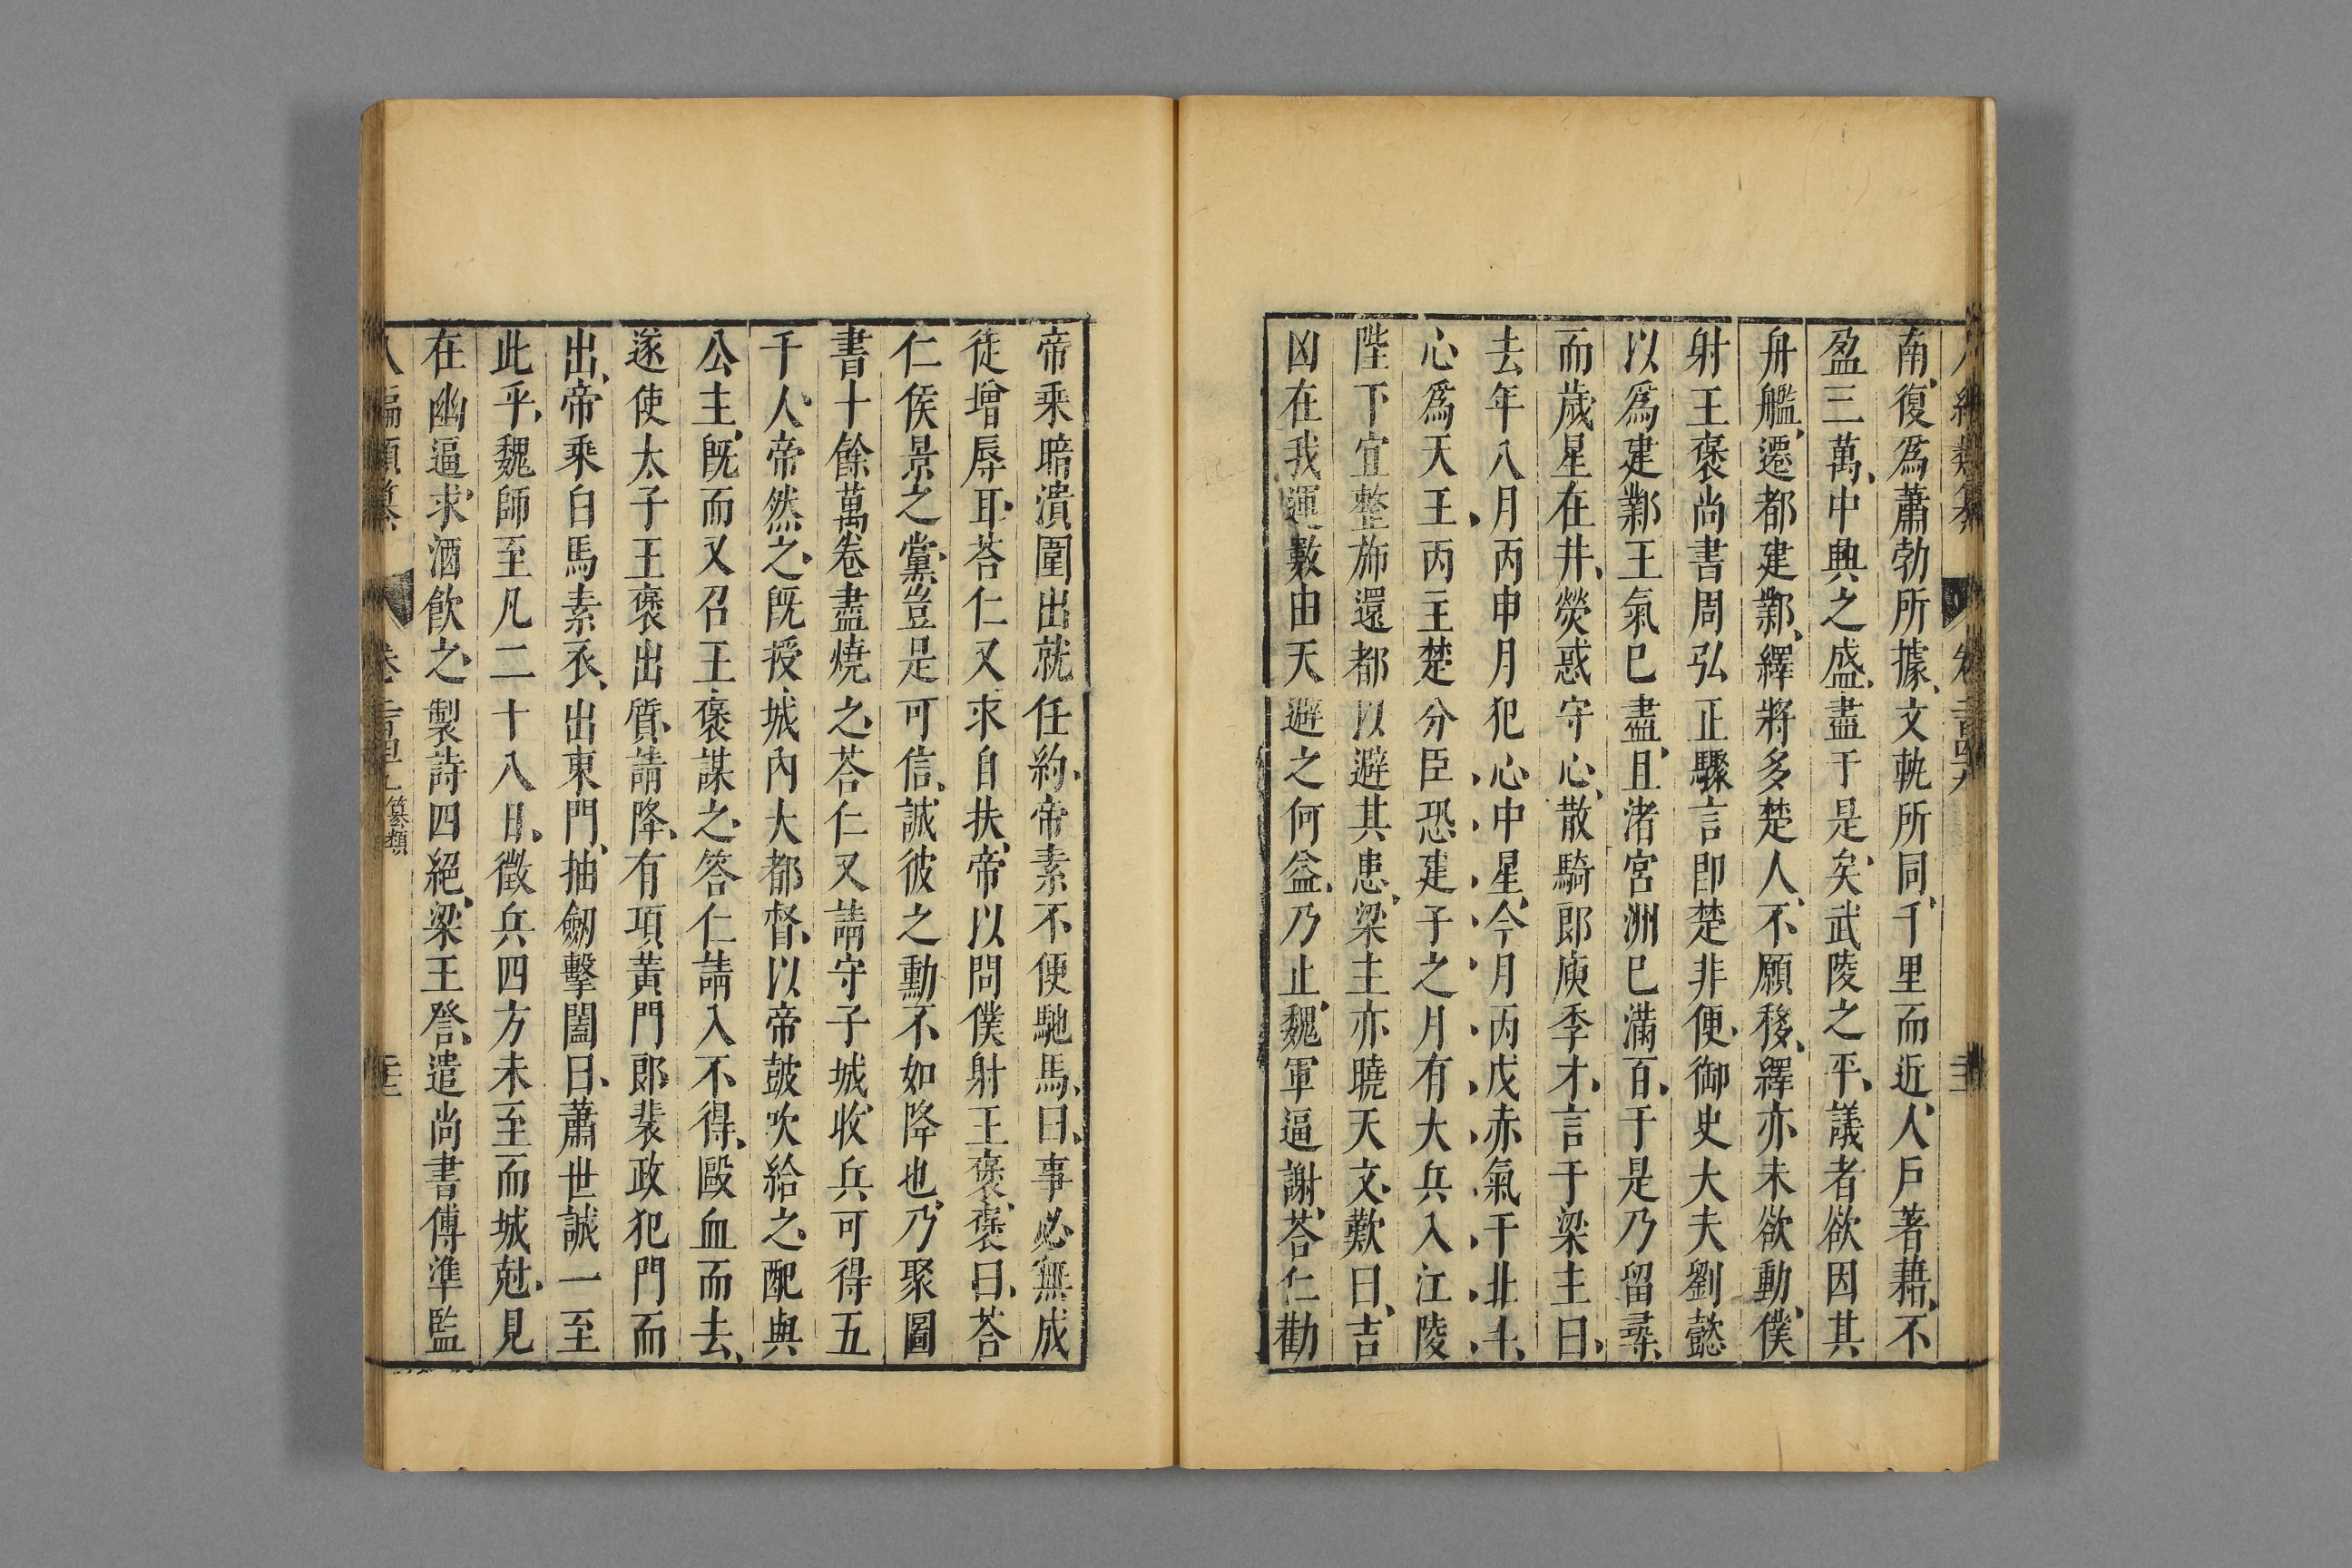 南、復爲蕭勃所據、文軌所同、千里而近、人戶著藉、不
盈三萬、中興之盛、盡于是矣、武陵之平、議者欲因其
舟艦、遷都建鄴、繹將多楚人、不願移、繹亦未欲動、僕
射王褒尚書周弘正驟言即楚非便、御史大夫劉懿
以爲建鄴王氣巳盡、且渚宮洲巳滿百、于是乃留尋、
而歲星在井、熒惑守心、散騎郎庾季才、言于梁主曰、
去年八月丙申月犯心中星、今月丙戊赤氣干北斗、
心爲天王、丙主楚分臣恐建子之月有大兵入江陵
陛下宜整斾還都以避其患、梁主亦曉天文、歎曰、吉
凶在我運數由天避之何益、乃止、魏軍逼謝、荅仁勸
帝乘暗潰圍出就任約、帝素不便馳馬、曰、事必無成
徒增辱耳、荅仁又求自扶、帝以問僕射王褒、褒曰、荅
仁侯景之黨、豈是可信、誠彼之勳不如降也、乃聚圖
書十餘萬卷盡燒之、荅仁又請守子城、收兵可得五
千人、帝然之、旣授城內大都督、以帝鼓吹給之、配與
公主、旣而又召王褒謀之、答仁請入不得、毆血而去、
遂使太子王褒出質、請降、有項黃門郎裴政犯門而
出、帝乘白馬素衣、出東門、抽劒擊闔曰、蕭世誠一至
此乎、魏師至凡二十八日、徵兵四方未至而城尅、見
在幽逼、求酒飲之、製詩四絕、梁王詧、遣尚書傅準監